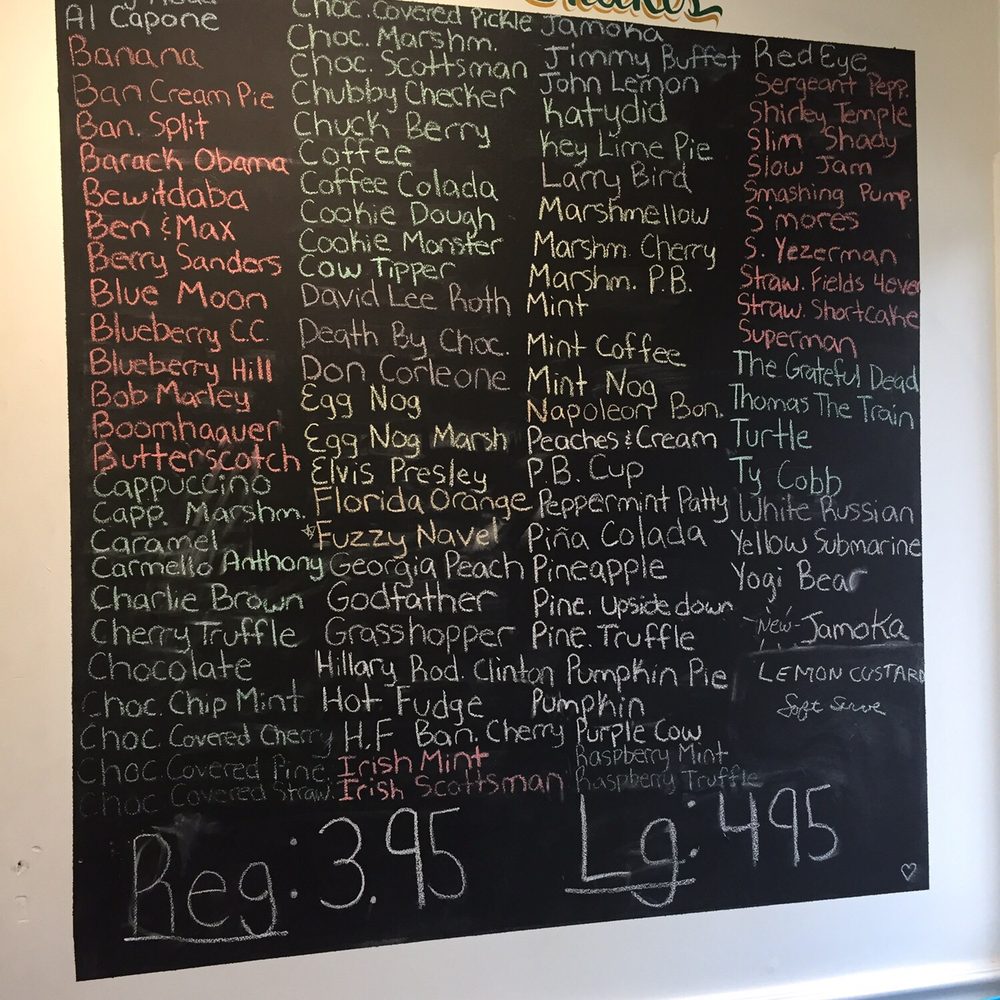 Shakes
Al Capone
Banana
Ban. Cream Pie
Ban. Split
Barack Obama
Bewitdaba
Ben & Max
Berry Sanders
Blue Moon
Blueberry C.C.
Blueberry Hill
Bob Marley
Boomhaquer
Butterscotch
Cappuccino
Capp. Marshm.
Caramel
Carmello Anthony
Charlie Brown
Cherry Truffle
Chocolate
Choc. Chip Mint
Choc. Covered Cherry
Choc. Covered Pine.
Choc. Covered Straw.
Choc. Covered Pickle
Choc. Marshm.
Choc. Scottsman
Chubby Checker
Chuck Berry
Coffee
Coffee Colada
Cookie Dough
Cookie Monster
Cow Tipper
David Lee Roth
Death By Choc.
Don Corleone
Egg Nog
Egg Nog Marsh
Elvis Presley
Florida Orange
*Fuzzy Navel
Georgia Peach
Godfather
Grasshopper
Hillary Rod. Clinton
Hot Fudge
H.F Ban. Cherry
Irish Mint
Irish Scottsman
Jamoka
Jimmy Buffet
John Lemon
Katydid
Key Lime Pie
Larry Bird
Marshmellow
Marshm. Cherry
Marshm. P.B.
Mint
Mint Coffee
Mint Nog
Napoleon Bon.
Peaches & Cream
P.B. Cup
Peppermint Patty
Piña Colada
Pineapple
Pine. Upside down
Pine. Truffle
Pumpkin Pie
Pumpkin
Purple Cow
Raspberry Mint
Raspberry Truffle
Red Eye
Sergeant Pepp.
Shirley Temple
Slim Shady
Slow Jam
Smashing Pump.
S'mores
S. Yezerman
Straw. Fields 4ever
Straw. Shortcake
Superman
The Grateful Dead
Thomas The Train
Turtle
Ty Cobb
White Russian
Yellow Submarine
Yogi Bear
-New- Jamoka
LEMON CUSTARD
Soft Serve
Reg: 3.95
Lg: 495